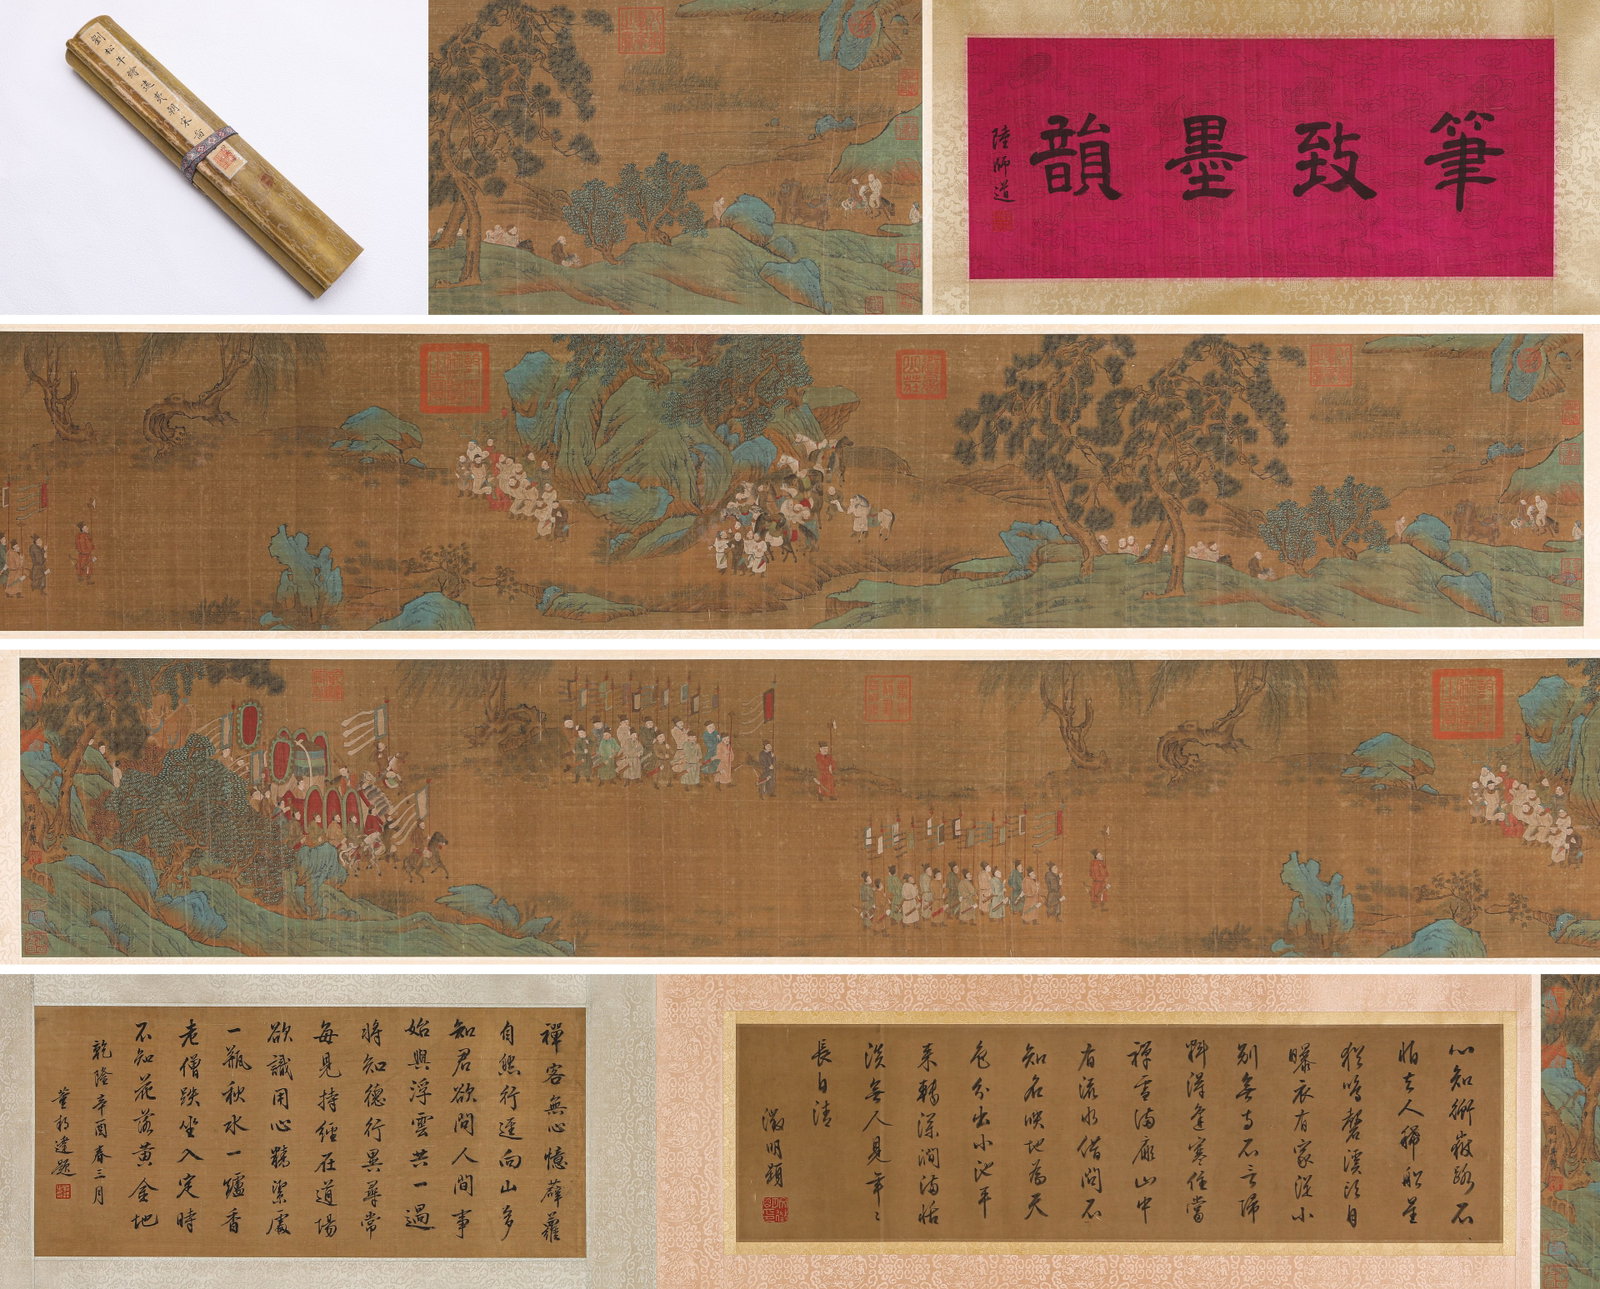 劉松年繪遠夷朝宋啚
筆致墨韻
陸師道
心知衡嶽路不
怕去人稀船里
猶鳴磬溪頭自
曝衣有家從小
別無寺不言歸
料得逢寒住當
禪雪滿扉山中
有流水借問不
知名映地為天
色分出小池平
來轉深澗滿恬
淡無人見年々
長自清
徵明題
禪客無心憶薜蘿
自然行逕向山多
知君欲問人間事
始與浮雲共一過
將知德行異尋常
每見持經在道場
欲識用心精潔處
一瓶秋水一爐香
老僧趺坐入定時
不知花落黃金地
乾隆辛酉春三月
董邦達題